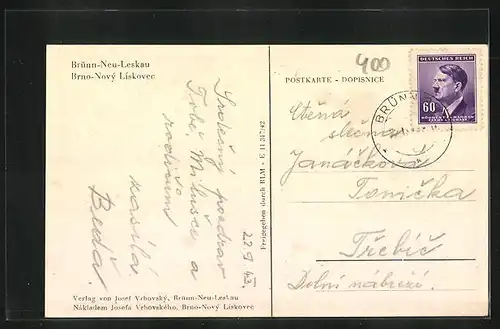 Brünn-Neu-Leskau
Brno-Nový Lískovec
Srdečný pozdrav
Tobě Milušce a
rodičům
zasílá
Beďa.
22 9 43.
Freigegeben durch RLM - E 11 347/42
400
POSTKARTE - DOPISNICE
DEUTSCHES REICH
60
BÖHMEN U. MÄHREN
ČECHY A MORAVA
BRÜNN
Ctěná
slečna
Janáčkova
Tonička
Třebíč
Dolní nábřeží.
Verlag von Josef Vrbovský, Brünn-Neu-Leskau
Nákladem Josefa Vrbovského, Brno-Nový Lískovec